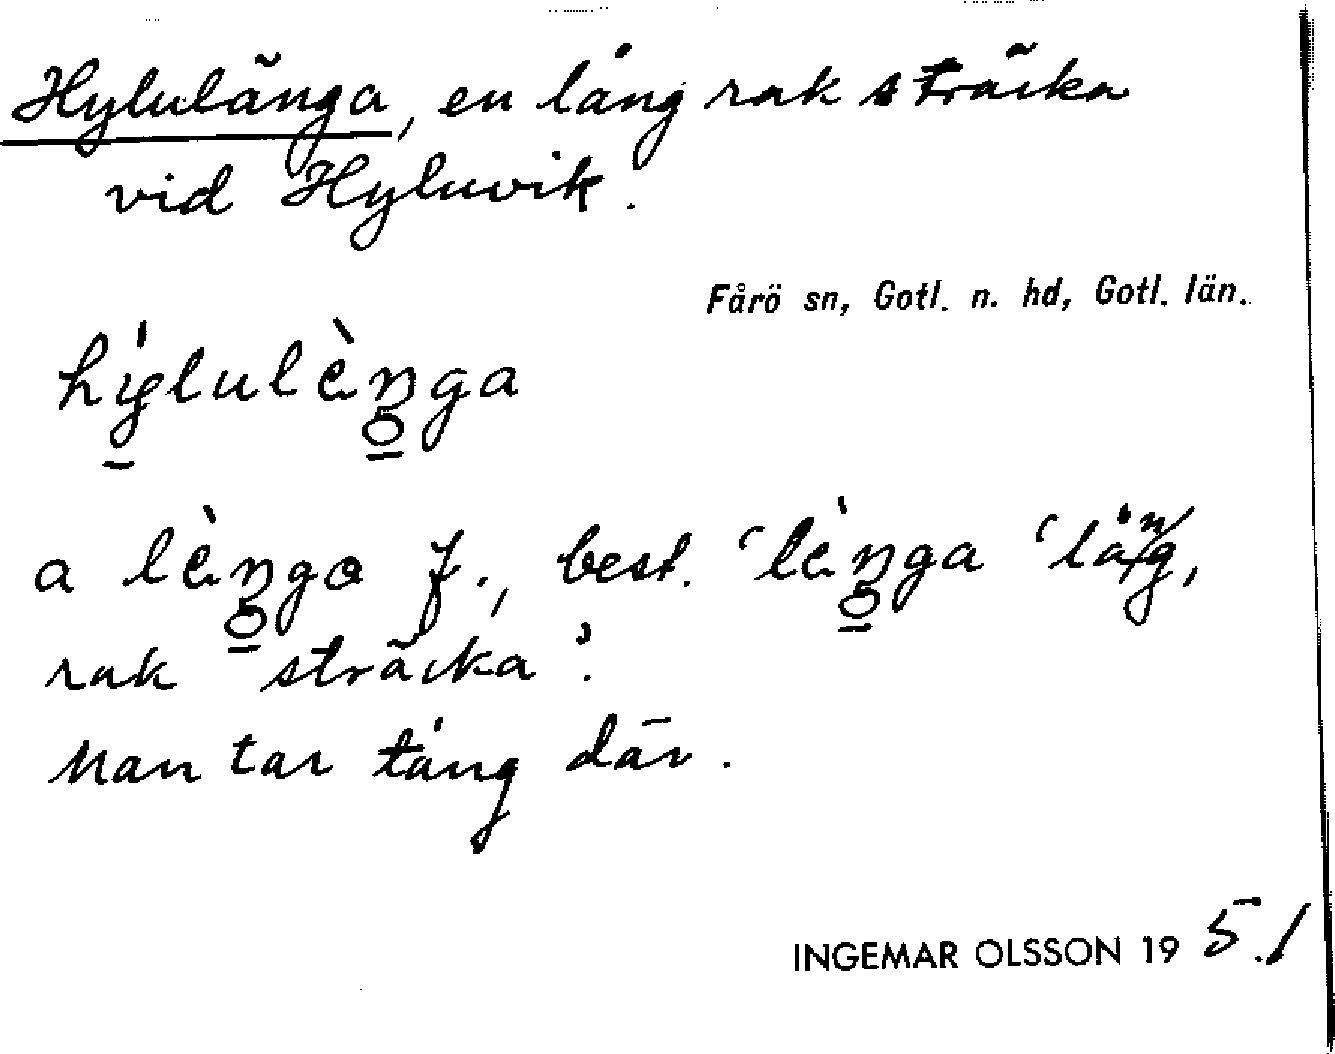 Hylulänga, en lång rak sträcka
vid Hyluvik.
Fårö sn, Gotl. n. hd, Gotl. län.
a best. 'lång,
rak sträcka'.
Man tar tång där.
INGEMAR OLSSON 1951